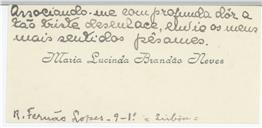 Associando-me com profunda dôr a
tão triste desenlace, envio os meus
mais sentidos pêsames.
Maria Lucinda Brandão Neves
R. Fernão Lopes - 9-1º - Lisboa -